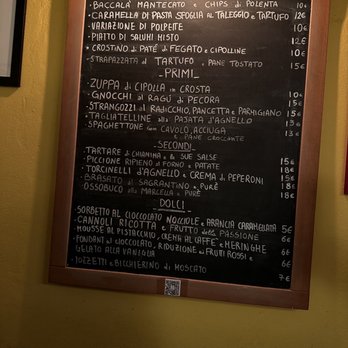 BACCALÀ MANTECATO e CHIPS di POLENTA 10€
CARAMELLA di PASTA SFOGLIA al TALEGGIO e TARTUFO 12€
VARIAZIONE di POLPETTE 10€
PIATTO di SALUMI MISTO 12€
CROSTINO di PATÉ di FEGATO e CIPOLLINE 10€
STRAPAZZATA al TARTUFO e PANE TOSTATO 15€
PRIMI
ZUPPA di CIPOLLA in CROSTA 10€
GNOCCHI al RAGÙ di PECORA
STRANGOZZI al RADICCHIO, PANCETTA e PARMIGIANO
TAGLIATELLINE alla PAJATA D'AGNELLO
SPAGHETTONE con CAVOLO, ACCIUGA
e PANE CROCCANTE
SECONDI
TARTARE di CHIANINA e le SUE SALSE 15€
PICCIONE RIPIENO al FORNO e PATATE 18€
TORCINELLI D'AGNELLO e CREMA di PEPERONI 15€
BRASATO al SAGRANTINO e PURÈ
OSSOBUCO alla MARSALA e PURÈ
DOLCI
SORBETTO AL CIOCCOLATO NOCCIOLE e ARANCIA CARAMELLATA 5€
CANNOLI RICOTTA e FRUTTO della PASSIONE 6€
MOUSSE di PISTACCHIO, CREMA AL CAFFÈ e MERINGHE 6€
FONDANT al CIOCCOLATO, RIDUZIONE ai FRUTTI ROSSI e 6€
GELATO ALLA VANIGLIA
TOZZETTI e BICCHIERINO di MOSCATO 7€